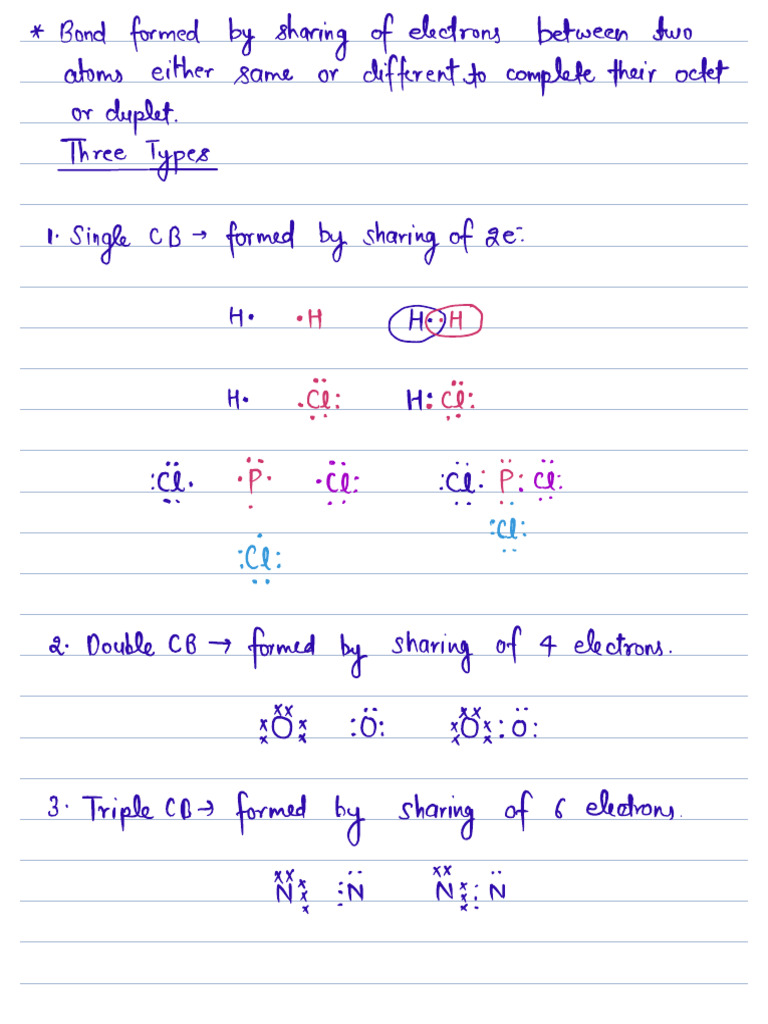 * Bond formed by sharing of electrons between two
atoms either same or different, to complete their octet
or duplet.
Three Types
1. Single CB → formed by sharing of 2e⁻.
H· ·H H··H
H· ·Cl: H:Cl:
:Cl· ·P· ·Cl: :Cl: P: Cl:
:Cl: :Cl:
2. Double CB → formed by sharing of 4 electrons.
xOx :O: xOx: :O:
3. Triple CB → formed by sharing of 6 electrons.
N N N N